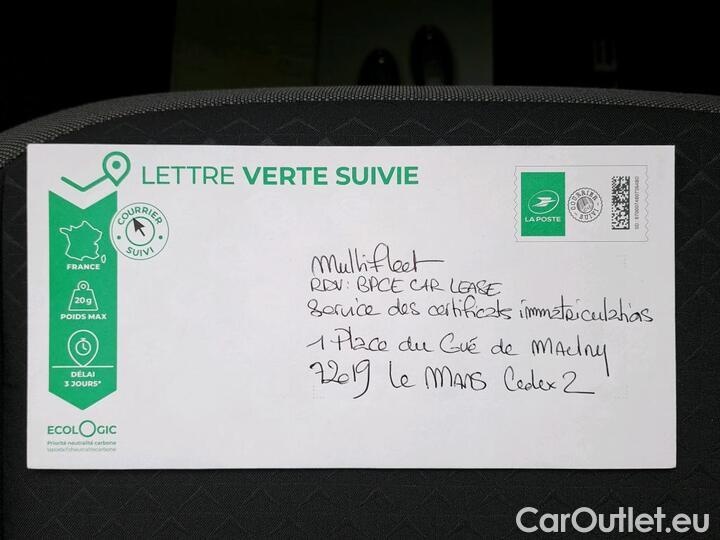 LETTRE VERTE SUIVIE
LA POSTE
COURRIER SUIVI
COURRIER SUIVI
FRANCE
20 g
POIDS MAX
DÉLAI
3 JOURS*
ECOLOGIC
Priorité neutralité carbone
laposte.fr/neutralitecarbone
Multifleet
RDV: BPCE CAR LEASE
Service des certificats immatriculations
1 Place du Gué de MAulny
72019 le MANS Cedex 2
CarOutlet.eu